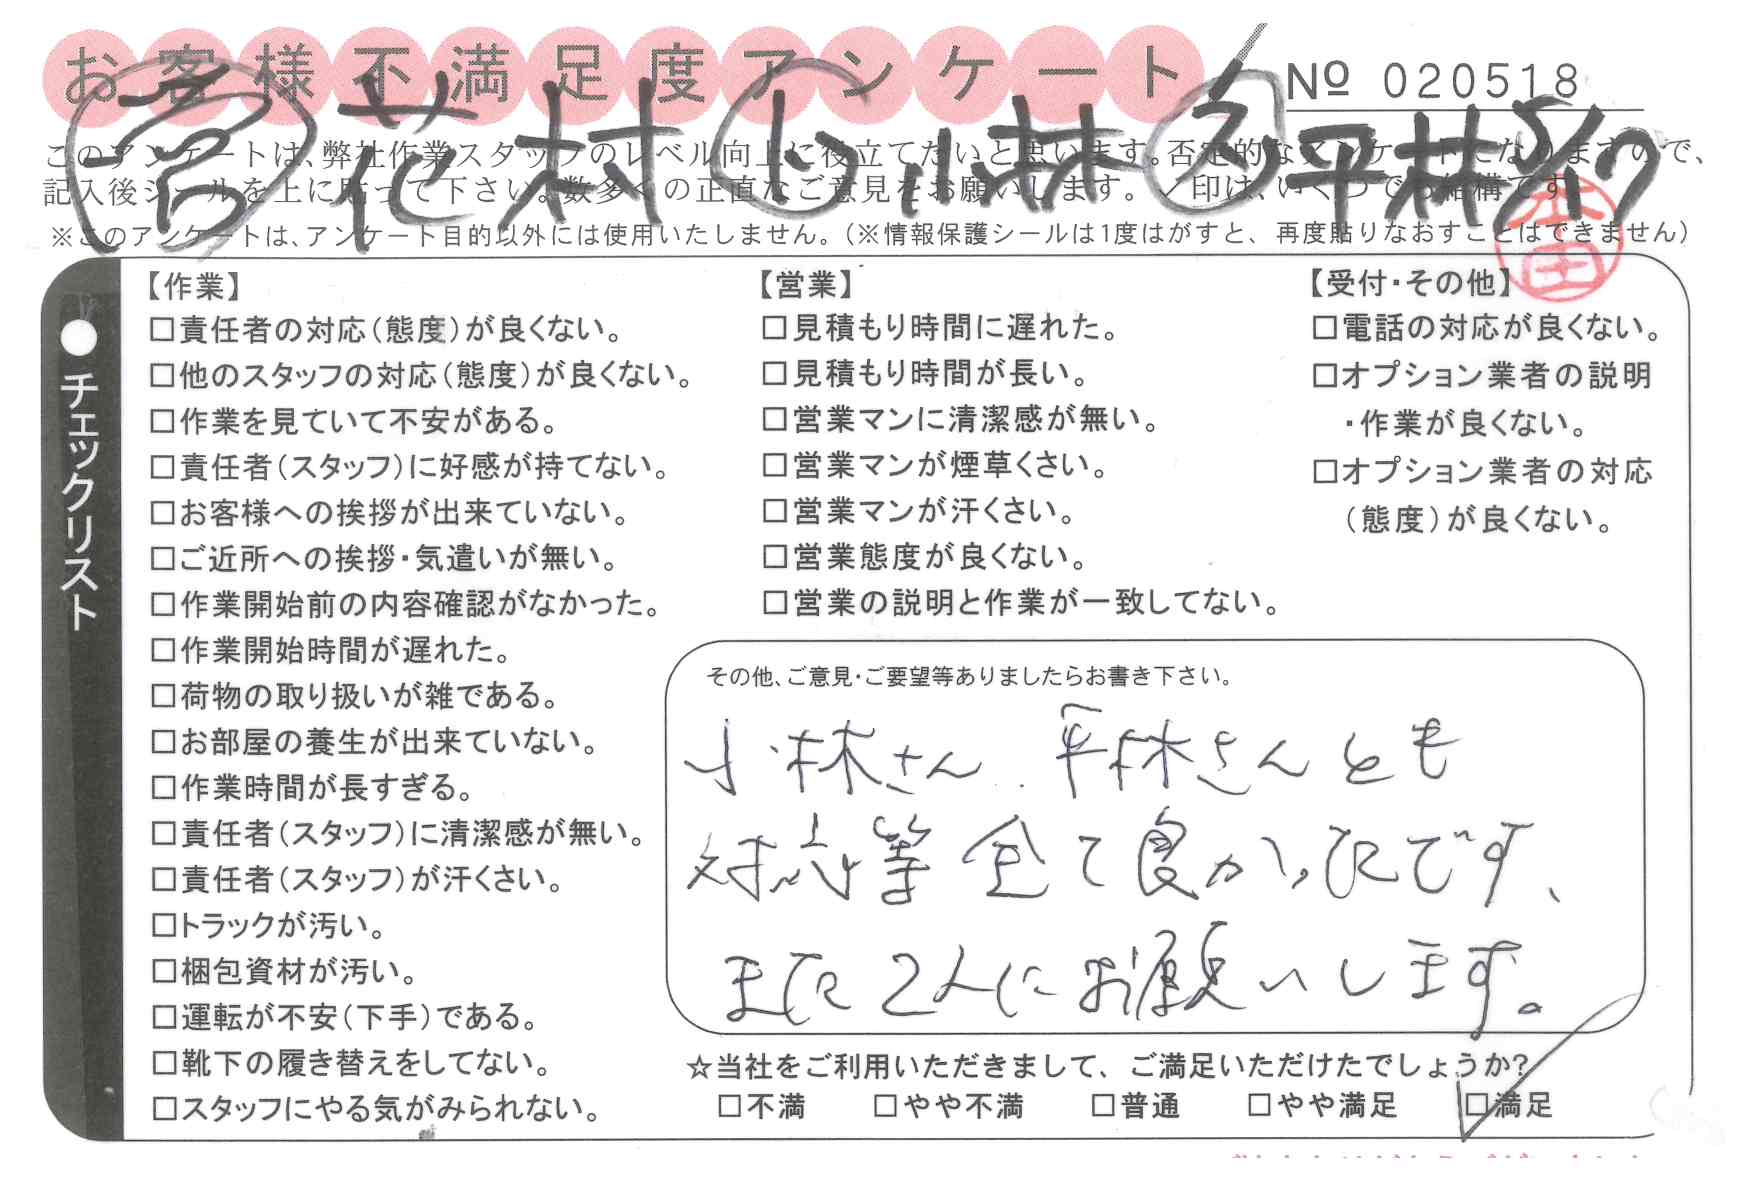 お客様不満足度アンケート
№ 020518
営 花村 ㊤ 小林 平林 5/17
このアンケートは、弊社作業スタッフのレベル向上に役立てたいと思います。否定的なアンケートになりますので、
記入後シールを上に貼って下さい。数多くの正直なご意見をお願いします。✓印は、いくつでも結構です。
※このアンケートは、アンケート目的以外には使用いたしません。（※情報保護シールは1度はがすと、再度貼りなおすことはできません）
本田
●チェックリスト
【作業】
□責任者の対応（態度）が良くない。
□他のスタッフの対応（態度）が良くない。
□作業を見ていて不安がある。
□責任者（スタッフ）に好感が持てない。
□お客様への挨拶が出来ていない。
□ご近所への挨拶・気遣いが無い。
□作業開始前の内容確認がなかった。
□作業開始時間が遅れた。
□荷物の取り扱いが雑である。
□お部屋の養生が出来ていない。
□作業時間が長すぎる。
□責任者（スタッフ）に清潔感が無い。
□責任者（スタッフ）が汗くさい。
□トラックが汚い。
□梱包資材が汚い。
□運転が不安（下手）である。
□靴下の履き替えをしてない。
□スタッフにやる気がみられない。
【営業】
□見積もり時間に遅れた。
□見積もり時間が長い。
□営業マンに清潔感が無い。
□営業マンが煙草くさい。
□営業マンが汗くさい。
□営業態度が良くない。
□営業の説明と作業が一致してない。
【受付・その他】
□電話の対応が良くない。
□オプション業者の説明
・作業が良くない。
□オプション業者の対応
（態度）が良くない。
その他、ご意見・ご要望等ありましたらお書き下さい。
小林さん 平林さんとも
対応等全て良かったです、
また2人にお願いします。
☆当社をご利用いただきまして、ご満足いただけたでしょうか?
□不満 □やや不満 □普通 □やや満足 ☑満足